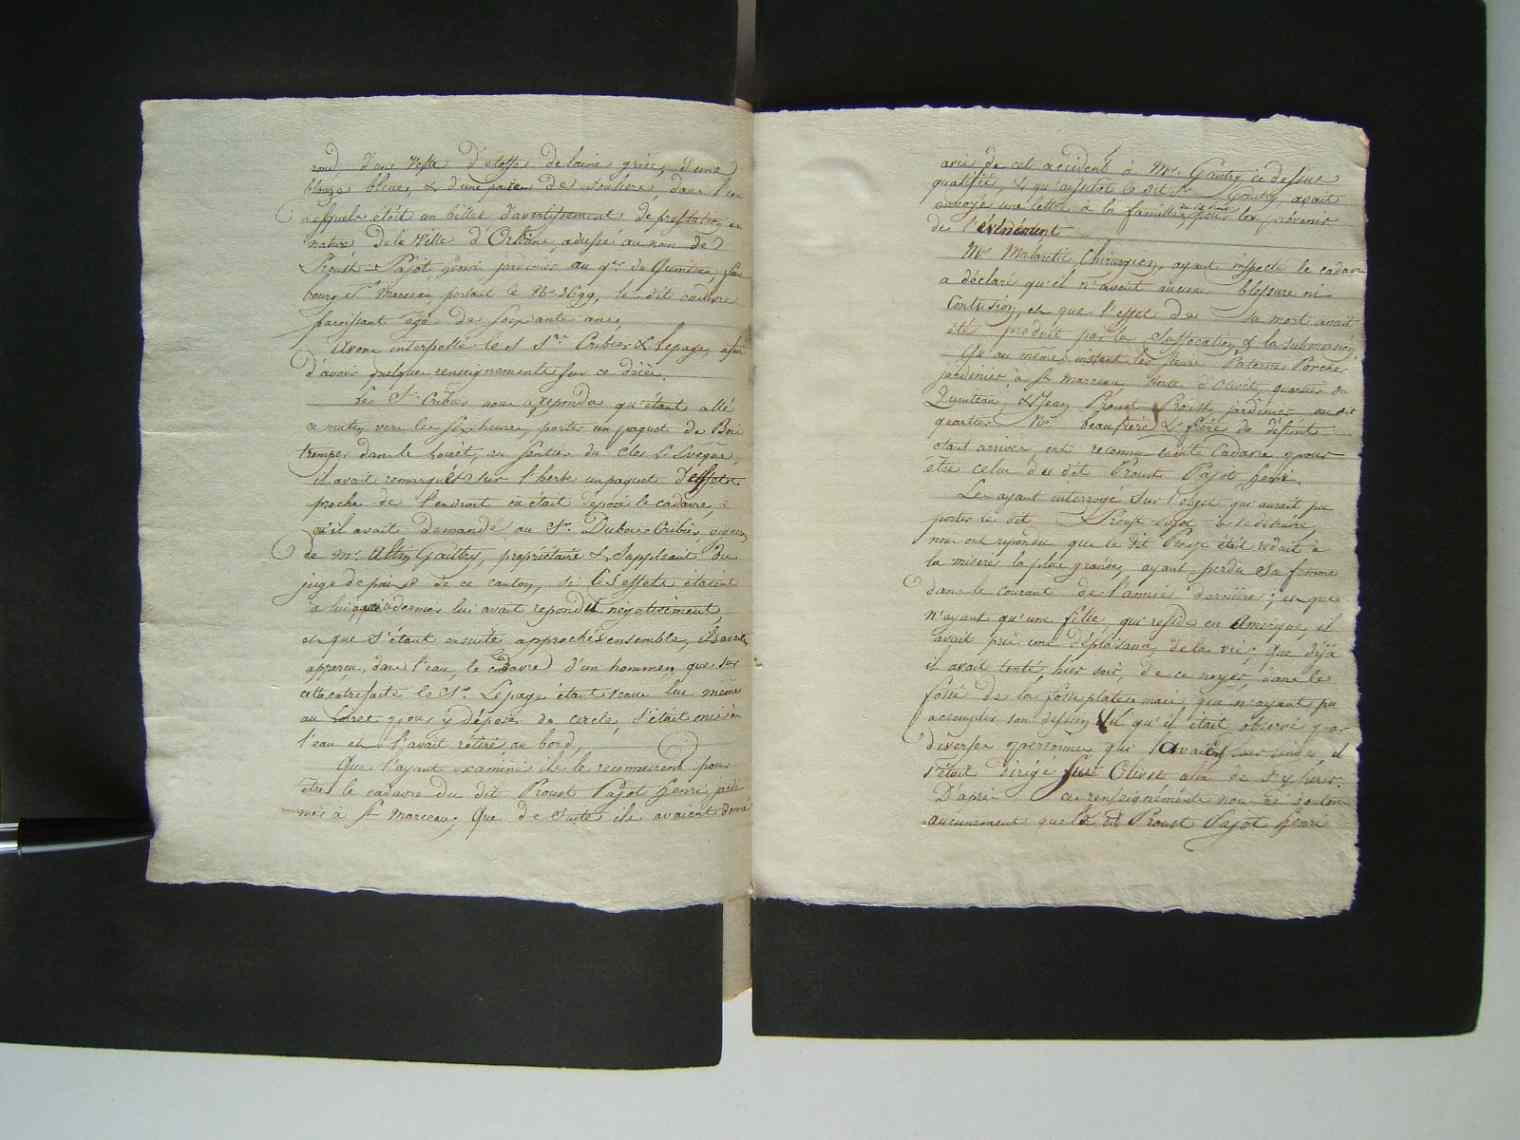 rond d'une veste d'étoffe de laine grise, d'une
blouze bleue, & d'une paire de souliers dans l'un
desquels était un billet d'avertissement de prestation en
nature de la ville d'Orléans, adressé au nom de
Proust Pajot henri, jardinier au qer de Quinteau, fau
bourg St Marceau, portant le No 3699, le dit cadavre
paroissant agé de soixante ans.
Avons interpellé les Srs Cribier & Lepage, afin
d'avoir quelque renseignements sur ce décès.
Le Sr Cribier nous a répondu qu'étant allé
ce matin vers les six heures, porter un paquet de
tremper dans le Loiret, au sentier du Clos L'Evêque,
il avait remarqué sur l'herbe un paquet d'effets
proche de l'endroit où était déposé le cadavre,
qu'il avait demandé au Sr Dubois Cribier,
de Mr Gaittry, propriétaire & Suppléant du
juge de paix de ce canton, si les effets étaient
à lui, que ce dernier lui avait répondu négativement,
et que s'étant ensuite approchés ensemble, ils avaient
apperçu dans l'eau, le cadavre d'un homme, que sur
cette entrefaite le Sr Lepage étant venu lui même
au Loiret, pour y déposer de cercle, s'était mis à
l'eau et l'avait retiré au bord,
Que l'ayant examiné ils le reconnurent pour
être le cadavre du dit Proust Pajot henri jardi
nier à St Marceau; Que de suite ils avaient donné
avis de cet accident à Mr Gaitry ce dessus
qualifié, & qu'aussitot le dit Sr Gaitry avait
envoyé une lettre à la famille pour les prévenir
de l'événement
Mr Malartit Chirurgien, ayant inspecté le cadavre
a déclaré qu'il n'avait aucune blessure ni
contusion, et que l'effet de sa mort avait
été produit par la suffocation & la submersion,
Qu'au même instant les Sieurs Paterne Porcher
jardinier à St Marceau, Route d'Olivet, quartier du
Quinteau, & Jean Proust Proust, jardinier au dit
quartier beaufrère & frère du défunt
étant arrivés, ont reconnu le dit Cadavre pour
être celui du dit Proust Pajot henri.
Les ayant interrogé sur l'objet qui aurait pu
porter le dit Proust Pajot à se détruire,
nous ont répondu que le dit Proust était réduit à
la misère la plus grande, ayant perdu sa femme
dans le courant de l'année dernière; et que
n'ayant qu'une fille, qui réside en Amérique, il
avait pris une déplaisance de la vie; Que déjà
il avait tenté, hier soir, de se noyer, dans le
fossé de la fosse plate mais que n'ayant pu
accomplir son dessein, vu qu'il était observé par
diverses personnes qui l'avaient il
s'était dirigé sur Olivet afin de s'y périr.
D'après ces renseignements nous
aucunement que le dit Proust Pajot henri